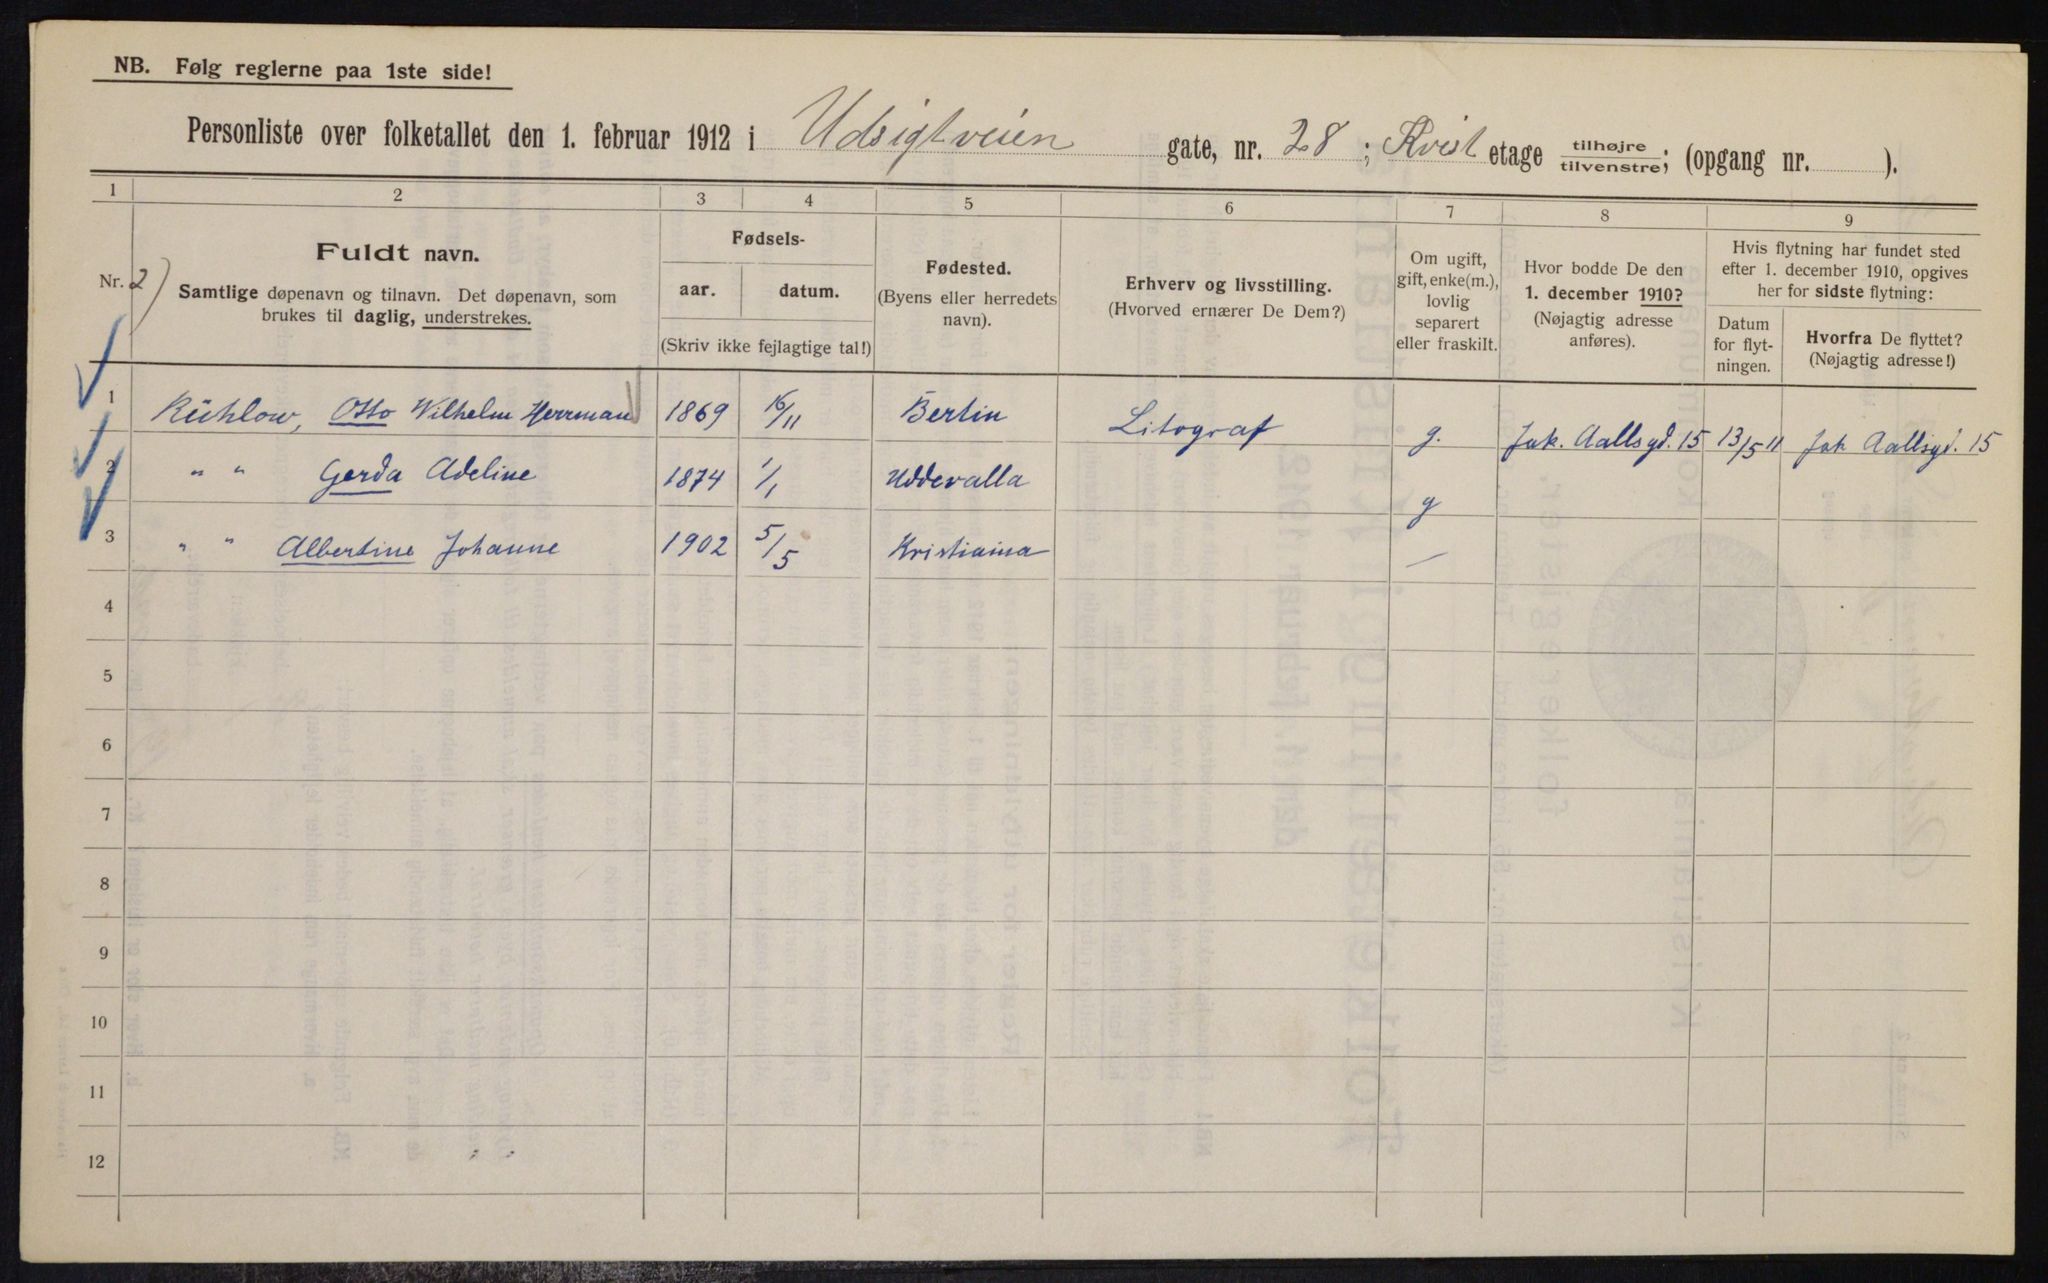 NB. Følg reglerne paa 1ste side!
Personliste over folketallet den 1. februar 1912 i Udsigtveien gate, nr. 28; Kvist etage tilhøjre/tilvenstre; (opgang nr. ).
1 2 3 4 5 6 7 8 9
Nr. 2)
Fuldt navn.
Samtlige døpenavn og tilnavn. Det døpenavn, som
brukes til daglig, understrekes.
Fødsels-
aar. datum.
(Skriv ikke fejlagtige tal!)
Fødested.
(Byens eller herredets
navn).
Erhverv og livsstilling.
(Hvorved ernærer De Dem?)
Om ugift,
gift, enke(m.),
lovlig
separert
eller fraskilt.
Hvor bodde De den
1. december 1910?
(Nøjagtig adresse
anføres).
Hvis flytning har fundet sted
efter 1. december 1910, opgives
her for sidste flytning:
Datum
for flyt-
ningen.
Hvorfra De flyttet?
(Nøjagtig adresse!)
1 Rühlow, Otto Wilhelm Herrman 1869 16/11 Berlin Litograf g. Jak. Aallsgd. 15 13/5 11 Jak Aallsgd. 15
2 " " Gerda Adeline 1874 1/1 Uddevalla g
3 " " Albertine Johanne 1902 5/5 Kristiania —
4
5
6
7
8
9
10
11
12